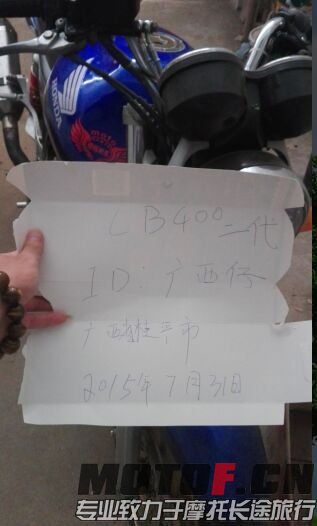 HONDA
moto
CB400二代
ID:广西仔
广西桂平市
2015年7月31日
MOTOF.CN
专业致力于摩托长途旅行